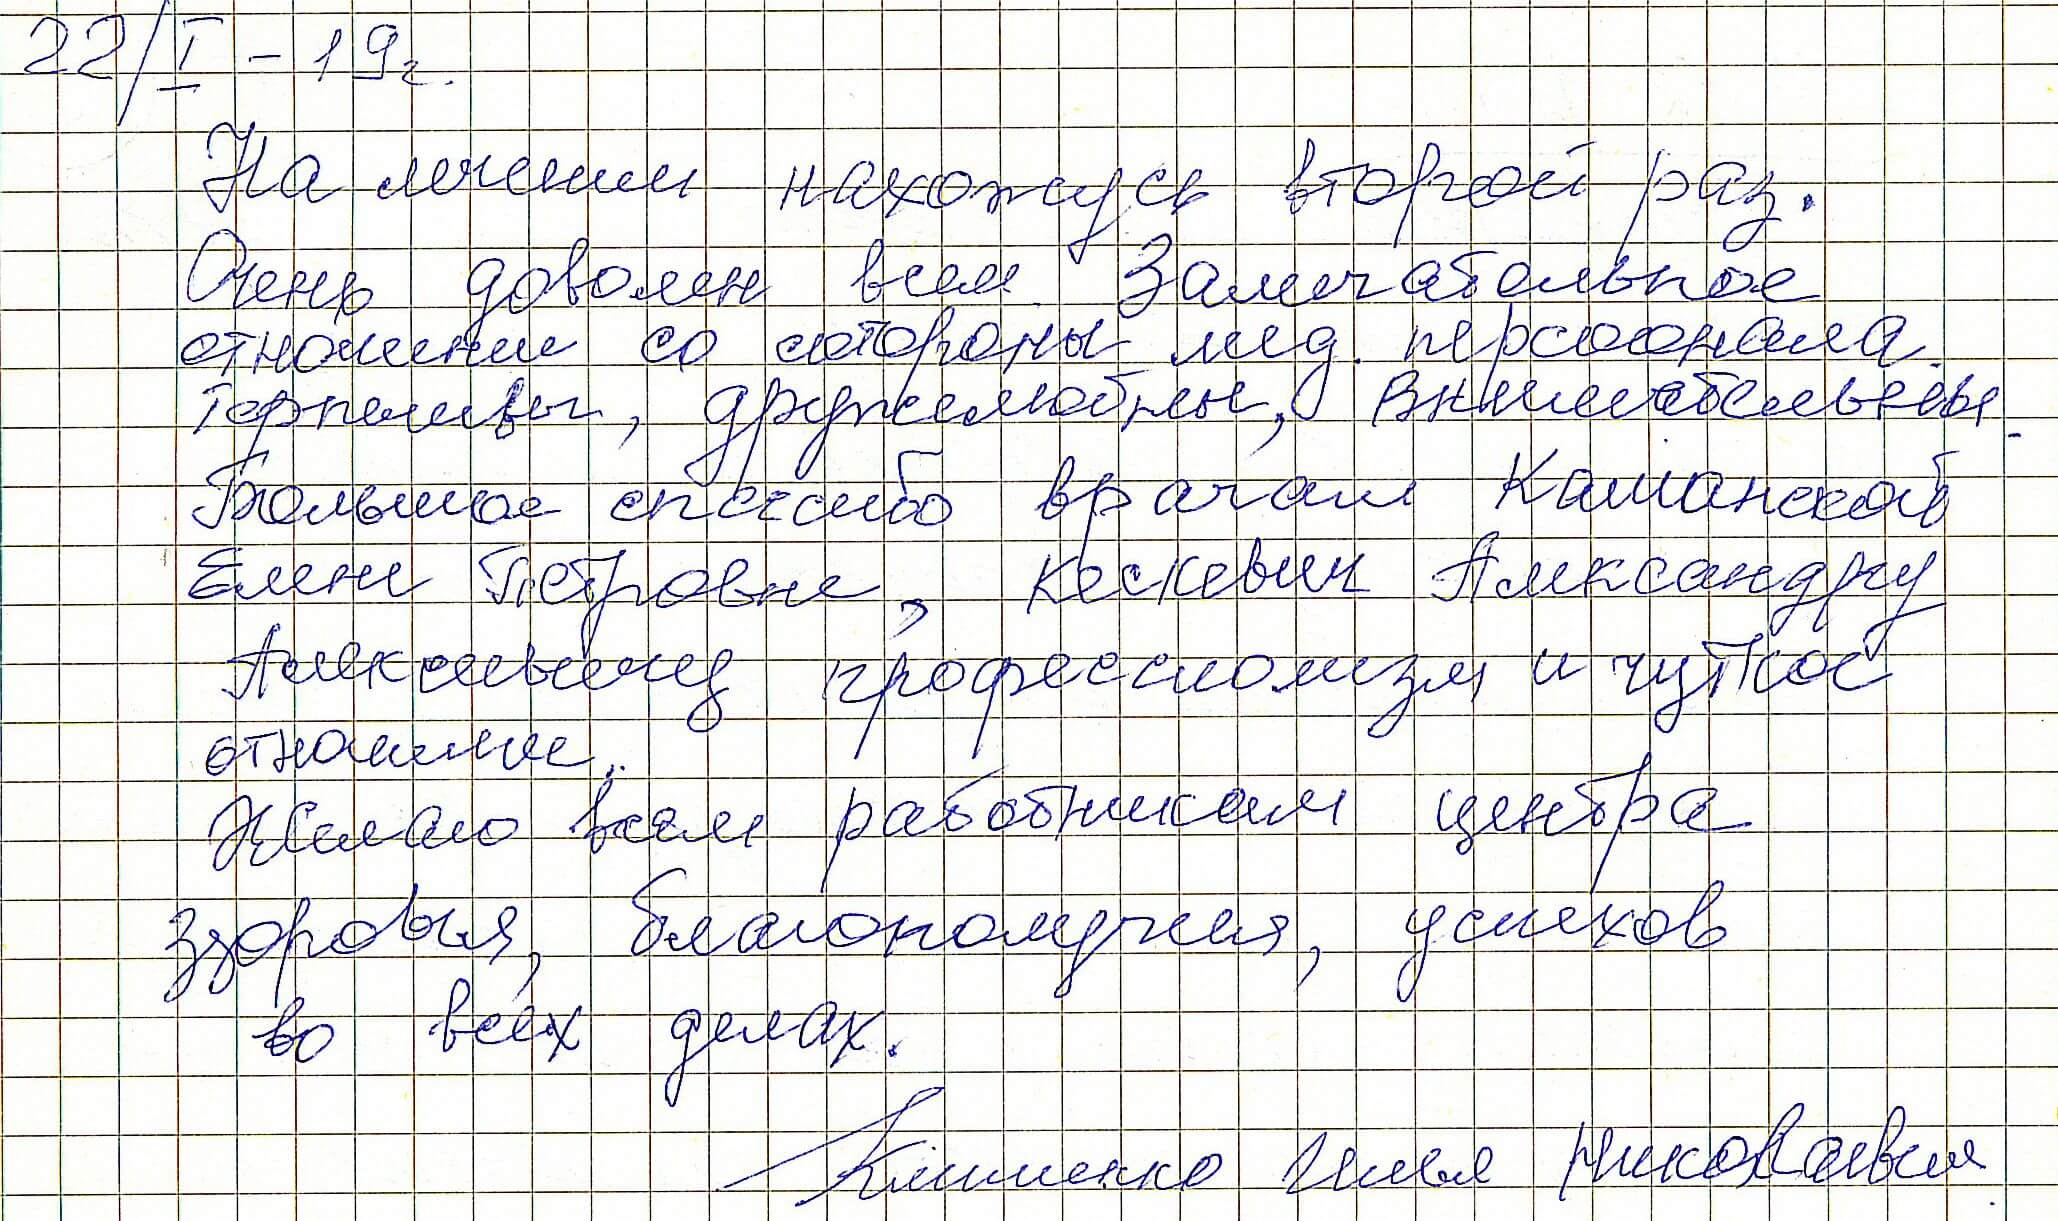 22/I - 19г.
На лечении нахожусь второй раз.
Очень доволен всем. Замечательное
отношение со стороны мед. персоонала.
Терпеливы, дружелюбны, внимательны.
Большое спасибо врачам
Елене Петровне, Александру
Алексеевичу профессионализм и чуткое
отношение.
Желаю всем работникам центра
здоровья, благополучия, успехов
во всех делах.
Клименко Илья